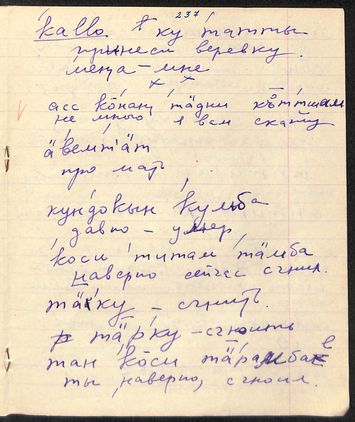 237
kallo. кӯ татты
принеси веревку.
меңа – мне
асс ко̄наң тӓдни ко̄ттшам
не много я вам скажу
а̄вемтӓт
про мать
кундокын кульба
давно – умер
коси титам тӓмба
наверно сейчас сгнил.
тӓку – сгнить.
тӓрку – сгноить
тан ко̄си тӓрамбае
ты наверно, сгноил.